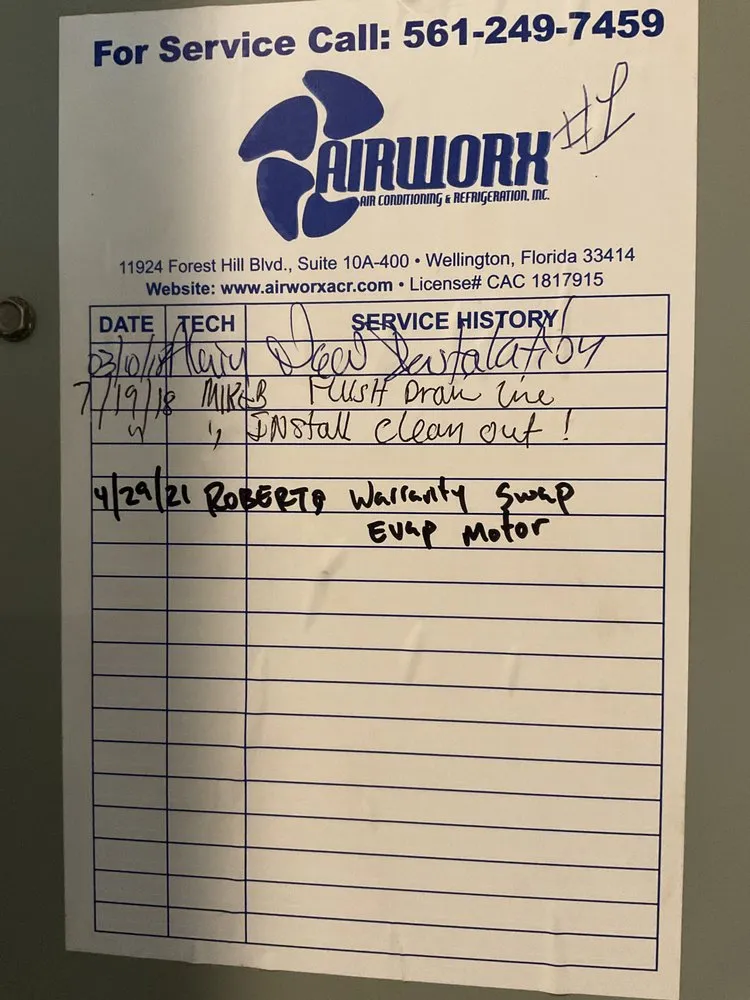 For Service Call: 561-249-7459
#1
AIRWORX
AIR CONDITIONING & REFRIGERATION, INC.
11924 Forest Hill Blvd., Suite 10A-400 • Wellington, Florida 33414
Website: www.airworxacr.com • License# CAC 1817915
DATE TECH SERVICE HISTORY
03/10/18
7/19/18 MIKEB FLUSH Drain line
" " INstall clean out !
4/29/21 ROBERTO Warranty Swap
Evap Motor